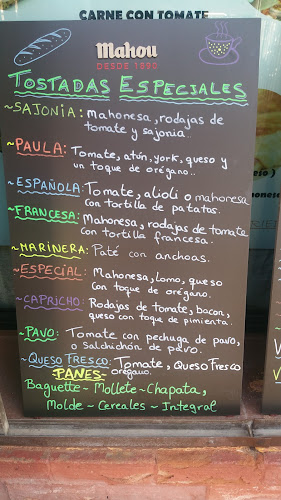 CARNE CON TOMATE
Mahou
DESDE 1890
TOSTADAS ESPECIALES
~SAJONIA: mahonesa, rodajas de
tomate y sajonia..
~PAULA: Tomate, atún, york, queso y
un toque de orégano..
~ESPAÑOLA: Tomate, alioli o mahonesa
con tortilla de patatas.
~FRANCESA: Mahonesa, rodajas de tomate
con tortilla francesa.
~MARINERA: Paté con anchoas.
~ESPECIAL: Mahonesa, lomo, queso
con toque de orégano.
~CAPRICHO: Rodajas de tomate, bacon,
queso con toque de pimienta.
~PAVO: Tomate con pechuga de pavo,
o salchichón de pavo.
~QUESO FRESCO: Tomate, Queso Fresco
orégano.
PANES
Baguette ~ Mollete ~ Chapata,
Molde ~ Cereales ~ Integral